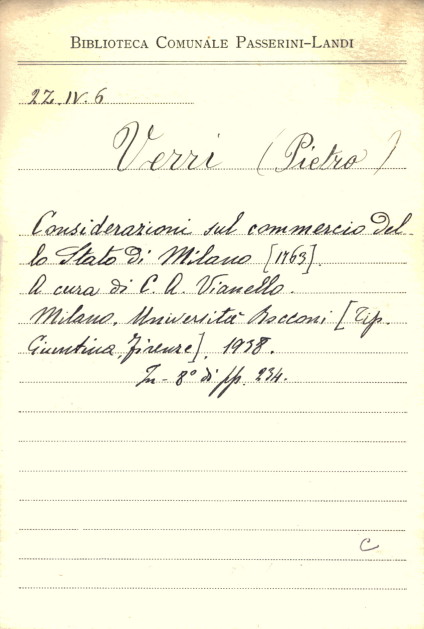 BIBLIOTECA COMUNALE PASSERINI-LANDI
2Z.IV.6
Verri (Pietro)
Considerazioni sul commercio del-
lo Stato di Milano [1763].
A cura di C. A. Vianello.
Milano. Università Bocconi [Tip.
Giuntina, Firenze], 1938.
In-8° di pp. 234.
C